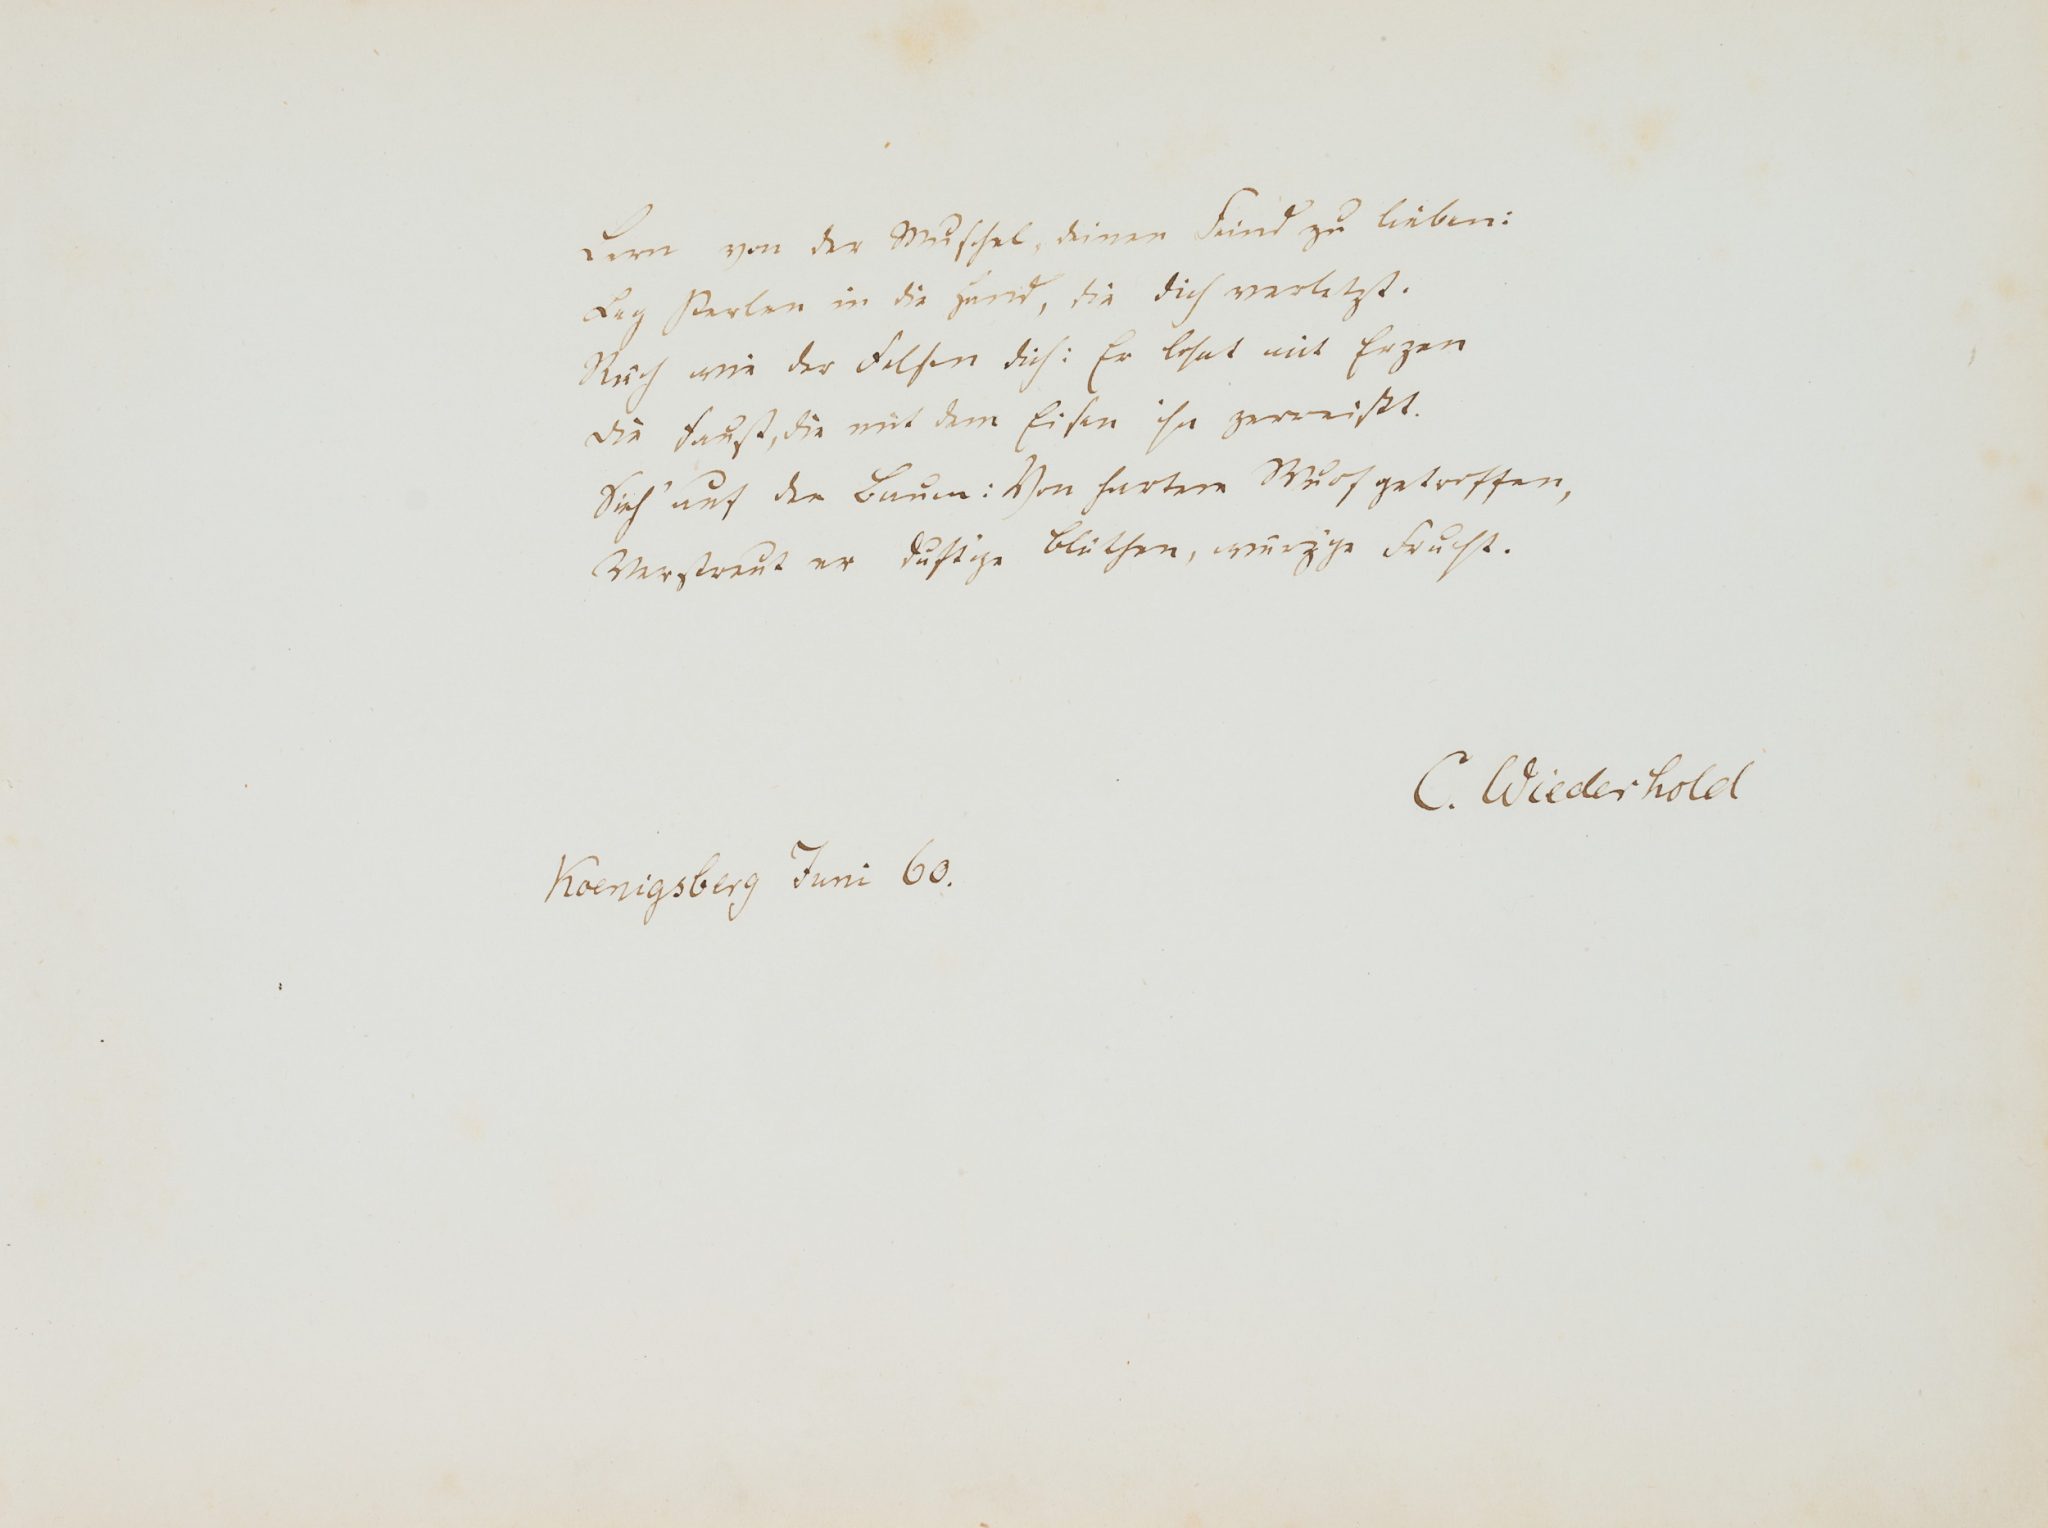 Lern von der Muschel, deinen Feind zu lieben:
Leg Perlen in die Hand, die dich verletzt.
Räch wie der Felsen dich: Er lohnt mit Erzen
die Faust, die mit dem Eisen ihn zerreißt.
Sieh' auf den Baum: Von hartem Wurf getroffen,
Verstreut er duftige Blüthen, würzige Frucht.
C. Wiederhold
Koenigsberg Juni 60.